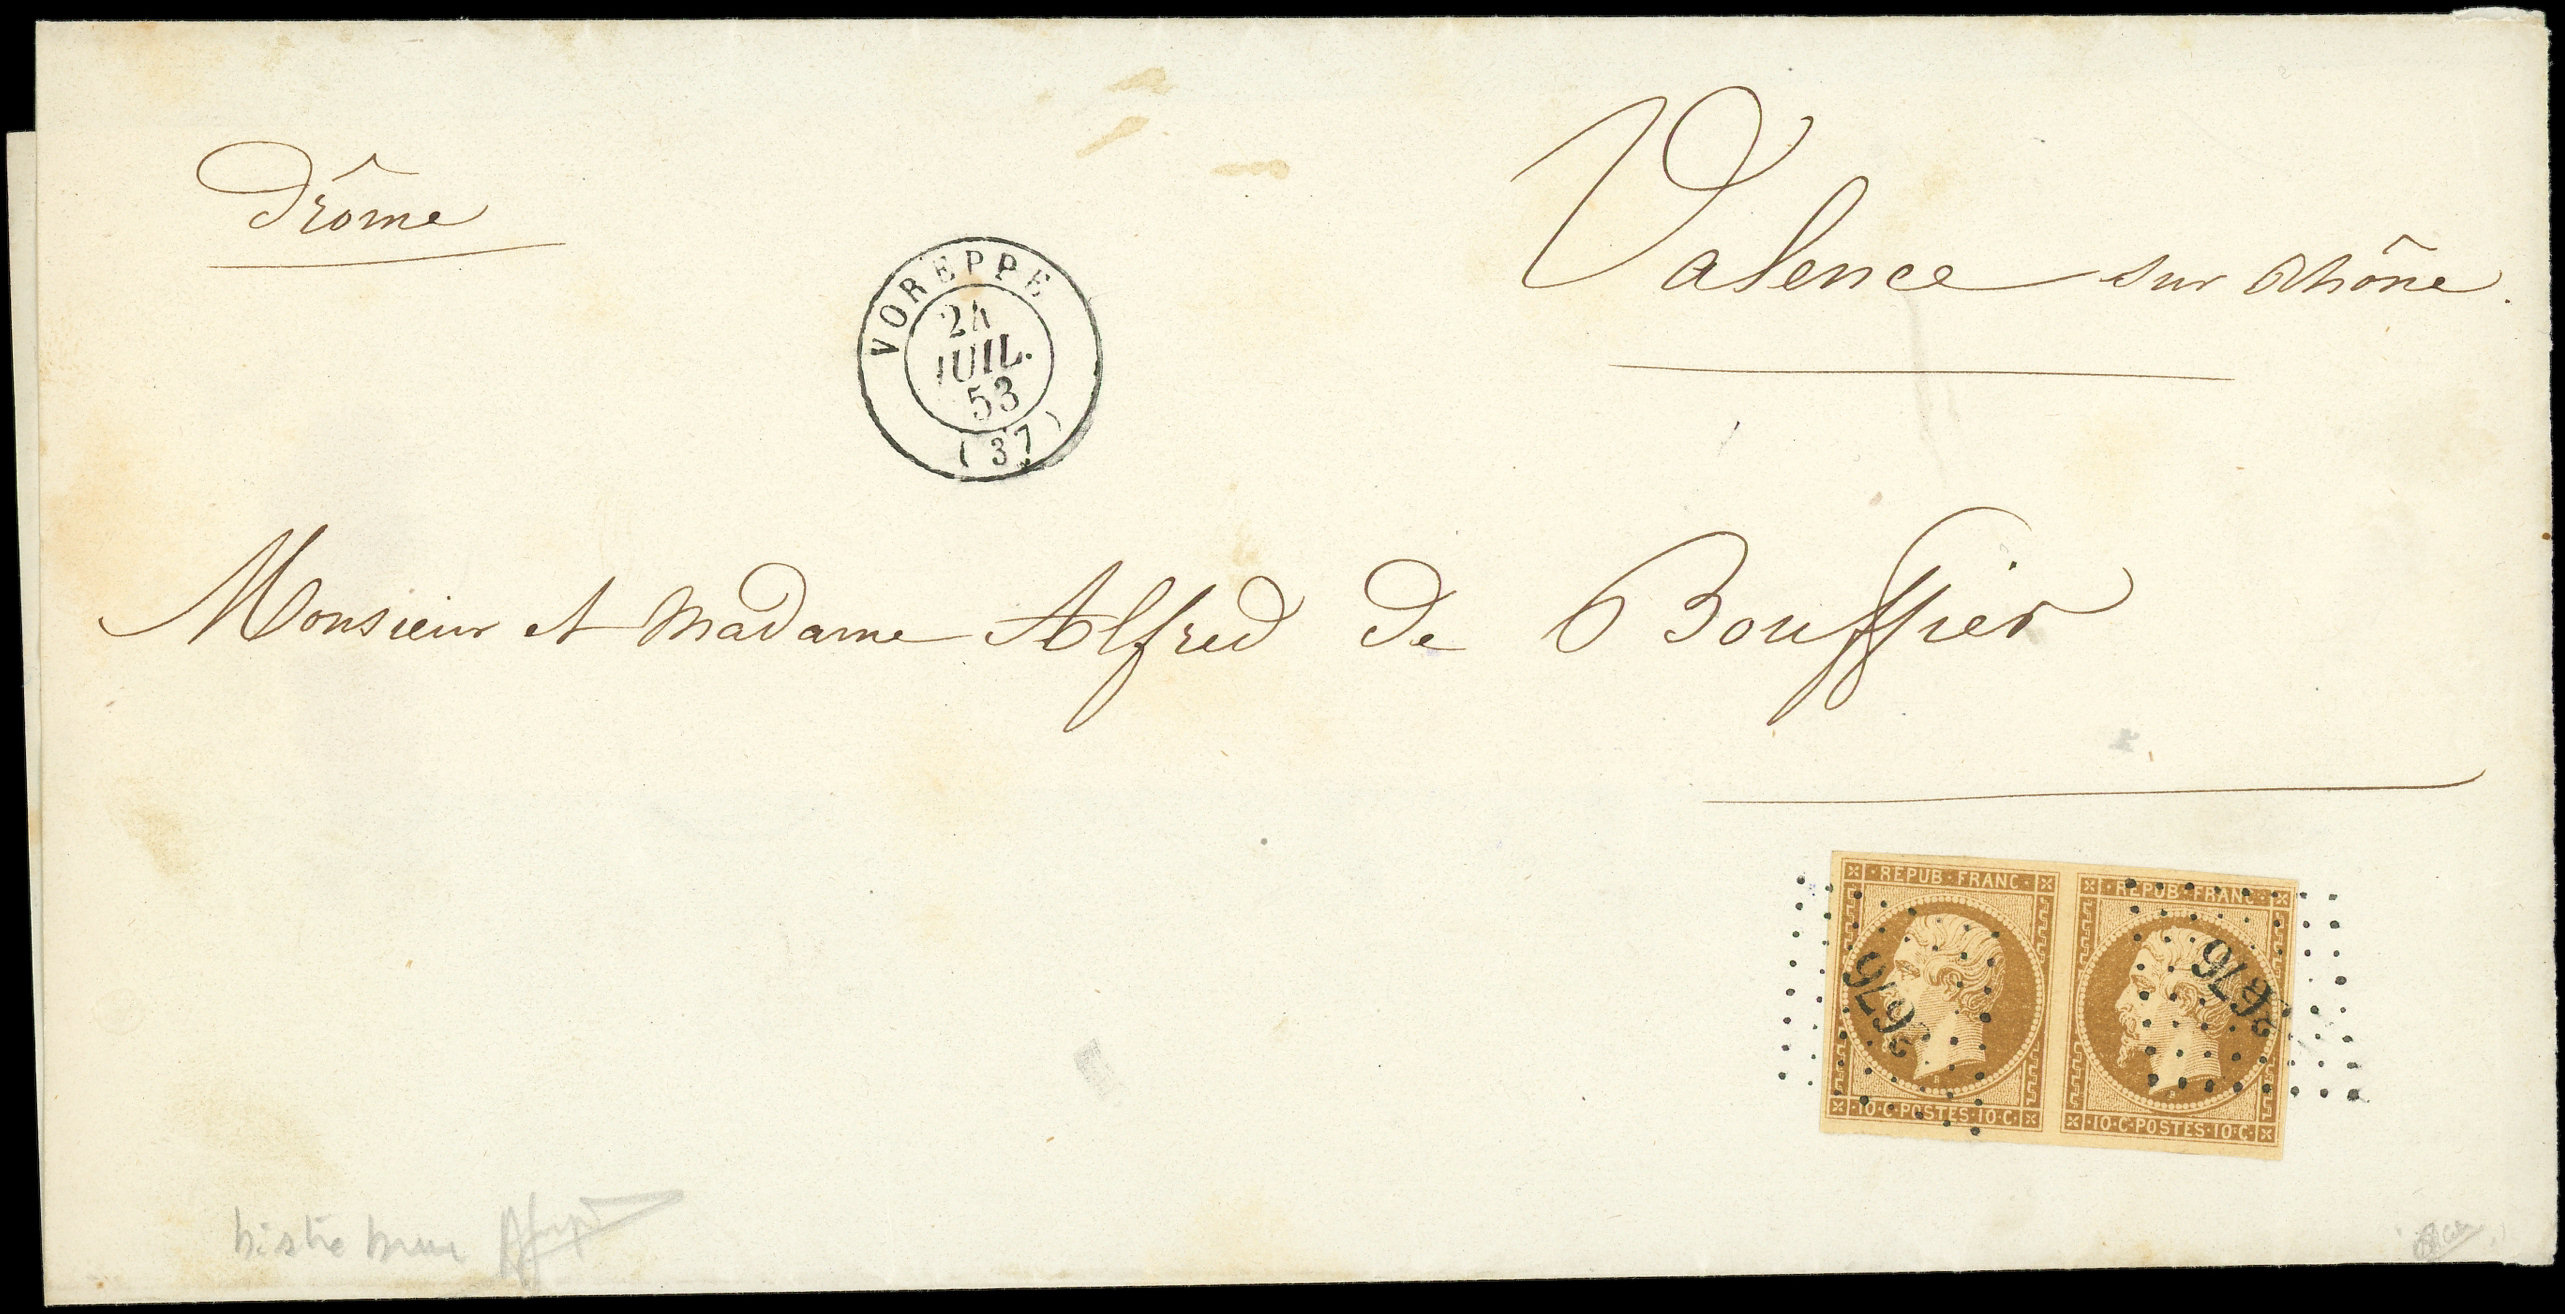 Drôme
Valence sur Rhône.
VOREPPE
24
JUIL.
53
(37)
Monsieur et Madame Alfred de Bouffier
REPUB·FRANC·
REPUB·FRANC·
3676
3676
10·C·POSTES·10·C·
10·C·POSTES·10·C·
bistre brun